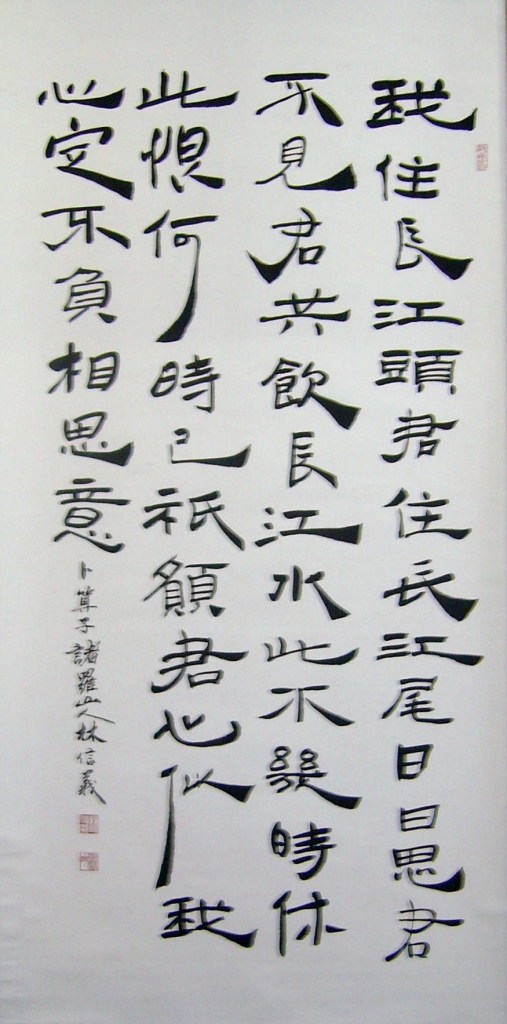 我住長江頭君住長江尾日日思君
不見君共飲長江水此不幾時休
此恨何時已祇願君心似我
心定不負相思意
卜算子諸羅山人林信義